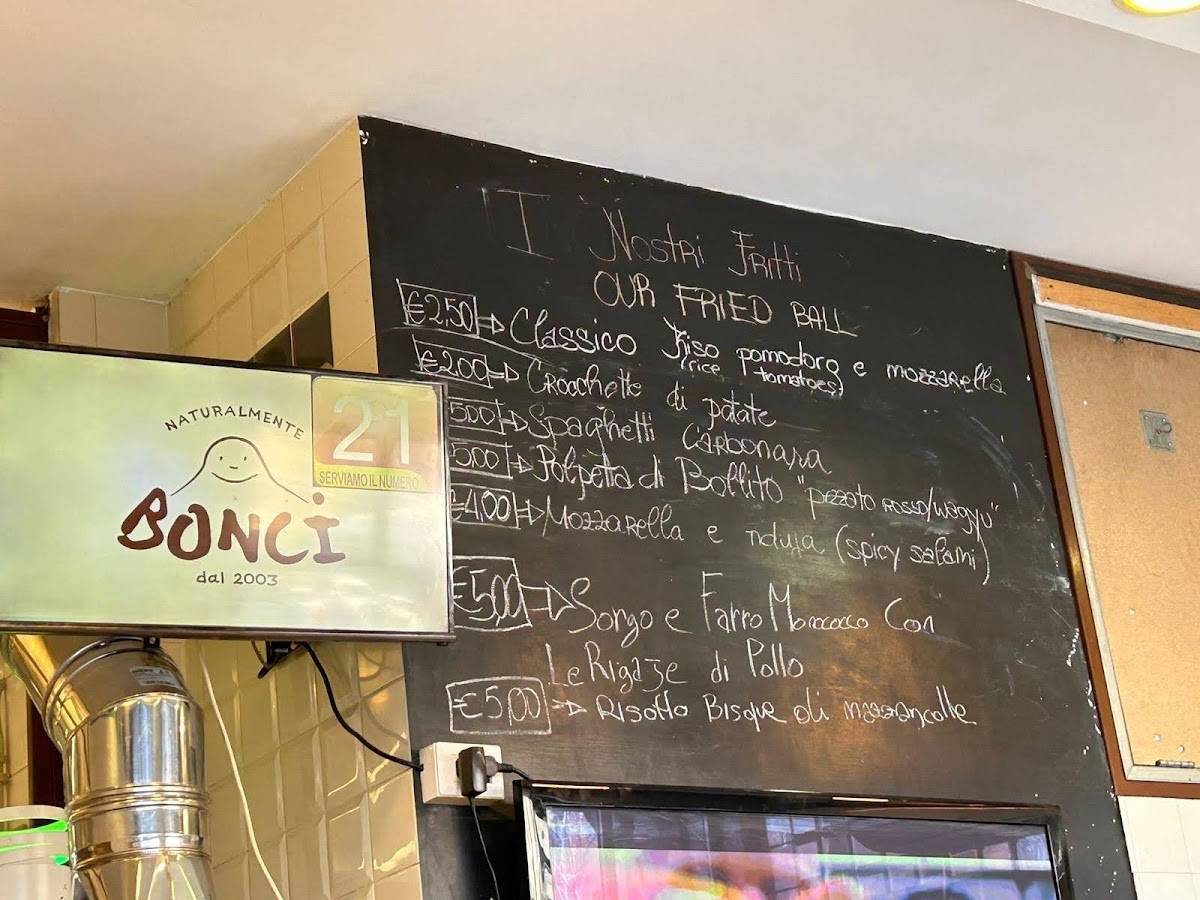 NATURALMENTE
BONCi
dal 2003
21
SERVIAMO IL NUMERO
I Nostri Fritti
OUR FRIED BALL
€2,50 Classico Riso pomodoro e mozzarella
(rice tomatoes)
€2,00 Crocchette di patate
5,00 Spaghetti Carbonara
5,00 Polpetta di Bollito "pezzato rosso/wagyu"
€4,00 Mozzarella e nduja (spicy salami)
€5,00 Sorgo e Farro Con
Le Rigaje di Pollo
€5,00 Risotto Bisque di mazzancolle